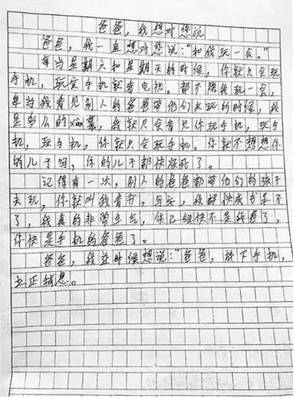 爸爸，我想对你说
爸爸，我一直想对你说："和我玩一会。"
每当星期六和星期天的时候，你就只会玩
手机，玩完手机就看电视。都不陪我玩一会，
每当我看见别人的爸爸带他们去玩的时候，我
是多么的羡慕，我就只会看见你玩手机，玩手
机，玩手机，你就只会玩手机，你就不想想你
的儿子吗，你的儿子都快疯了。
记得有一次，别人的爸爸都带他们的孩子
去玩，你就叫我看书，写字，我都快成书呆子
了，我真的非常生气，你已经快不是我爸了，
你快是手机的爸爸了。
爸爸，我这时候想说："爸爸，放下手机，
立正稍息。